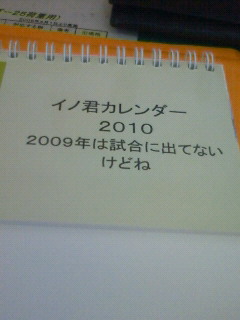 イノ君カレンダー
2010
2009年は試合に出てない
けどね